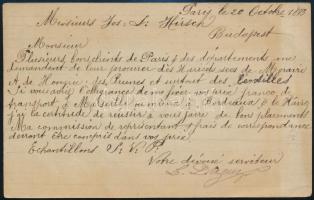 Paris le 20 Octobre 1883
Messieurs Jos. L. Hirsch
Budapest
Monsieur
Plusieurs marchands de Paris & des départements me
demandent de leur procurer des
A. de Hongrie, des Prunes et surtout des Lentilles
Si vous avez l'obligeance de me fixer vos prix franco de
transport, à Marseille ou même à Bordeaux & le Havre,
j'ai la certitude de réussir à vous faire de bons placements
Ma commission de représentant & frais de correspondance
devront être compris dans vos prix.
Echantillons S. V. P.
Votre dévoué serviteur